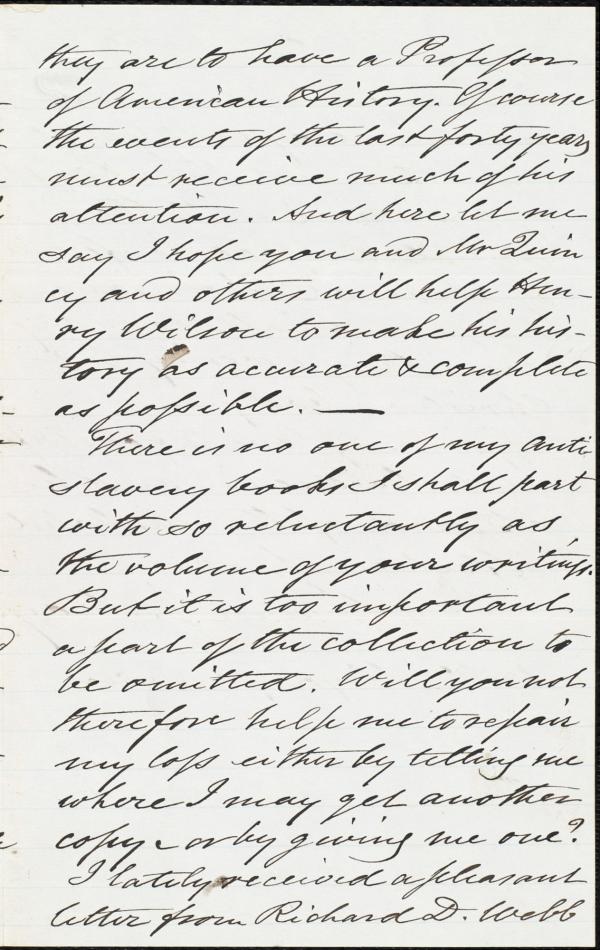 they are to have a Professor
of American History. Of course
the events of the last forty years
must receive much of his
attention. And here let me
say I hope you and Mr Quin
cy and others will help Hen-
ry Wilson to make his his-
tory as accurate & complete
as possible. —
There is no one of my anti
slavery books I shall part
with so reluctantly as
the volume of your writings.
But it is too important
a part of the collection to
be omitted. Will you not
therefore help me to repair
my loss either by telling me
where I may get another
copy - or by giving me one?
I lately received a pleasant
letter from Richard D. Webb